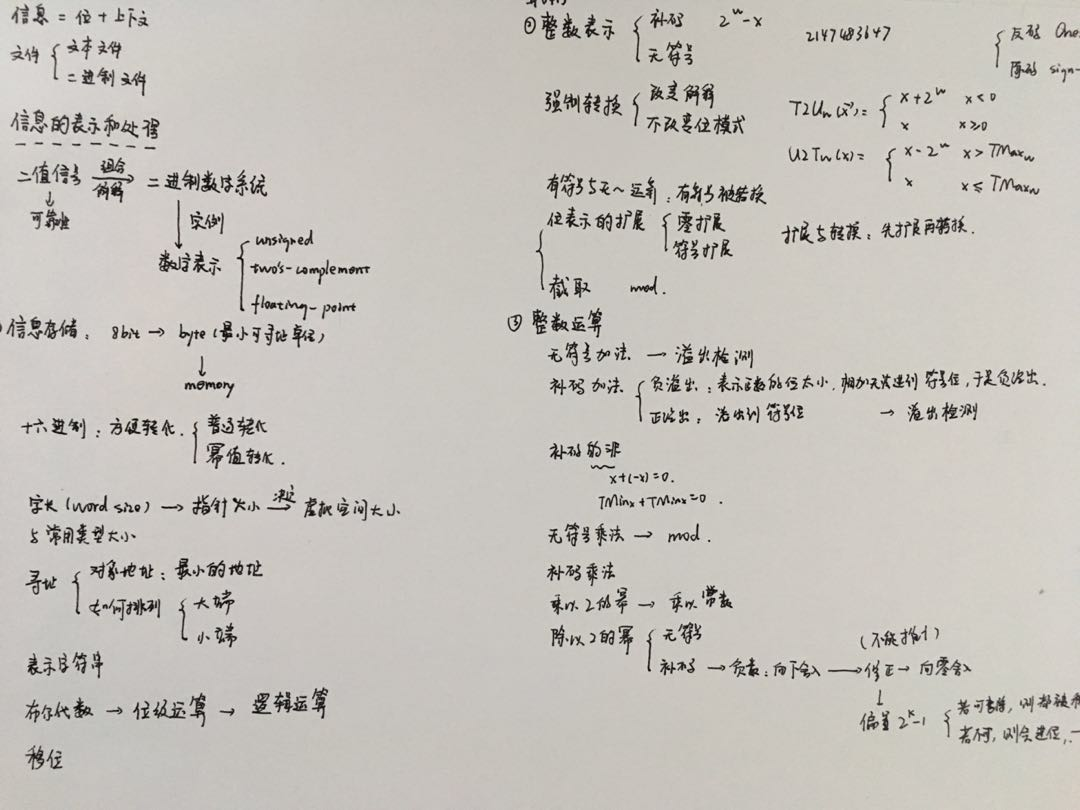 信息 = 位 + 上下文
文件 { 文本文件
二进制文件
信息的表示和处理
二值信号 组合 解释 → 二进制数字系统
↓ 可靠性
↓ 实例
数字表示 { unsigned
two's-complement
floating-point
信息存储: 8bit → byte (最小可寻址单位)
↓
memory
十六进制: 方便转化. { 普通转化
幂值转化.
字长 (word size) → 指针大小 决定→ 虚拟空间大小
与常用类型大小
寻址 { 对象地址: 最小的地址
如何排列 { 大端
小端
表示字符串
布尔代数 → 位级运算 → 逻辑运算
移位
② 整数表示 { 补码 2^w-x
无符号
2147483647
{ 反码 One
原码 sign-
强制转换 { 改变解释
不改变位模式
T2Uw(x) = { x+2^w x<0
x x≥0
U2Tw(x) = { x-2^w x>TMaxw
x x≤TMaxw
有符号与无~运算: 有符号被转换
{ 位表示的扩展 { 零扩展
符号扩展
扩展与转换: 先扩展再转换.
截取 mod.
③ 整数运算
无符号加法 → 溢出检测
补码加法 { 负溢出: 表示的位太小. 相加无法进到符号位, 于是负溢出.
正溢出: 溢出到符号位 → 溢出检测
补码的非
x+(-x)=0.
TMinx+TMinx=0.
无符号乘法 → mod.
补码乘法
乘以2的幂 → 乘以常数
除以2的幂 { 无符号
补码 → 负数: 向下舍入 → 修正 → 向零舍入
(不能推广)
↓
偏置 2^k-1 { 若可整除, 则都被
若不可, 则会进位,